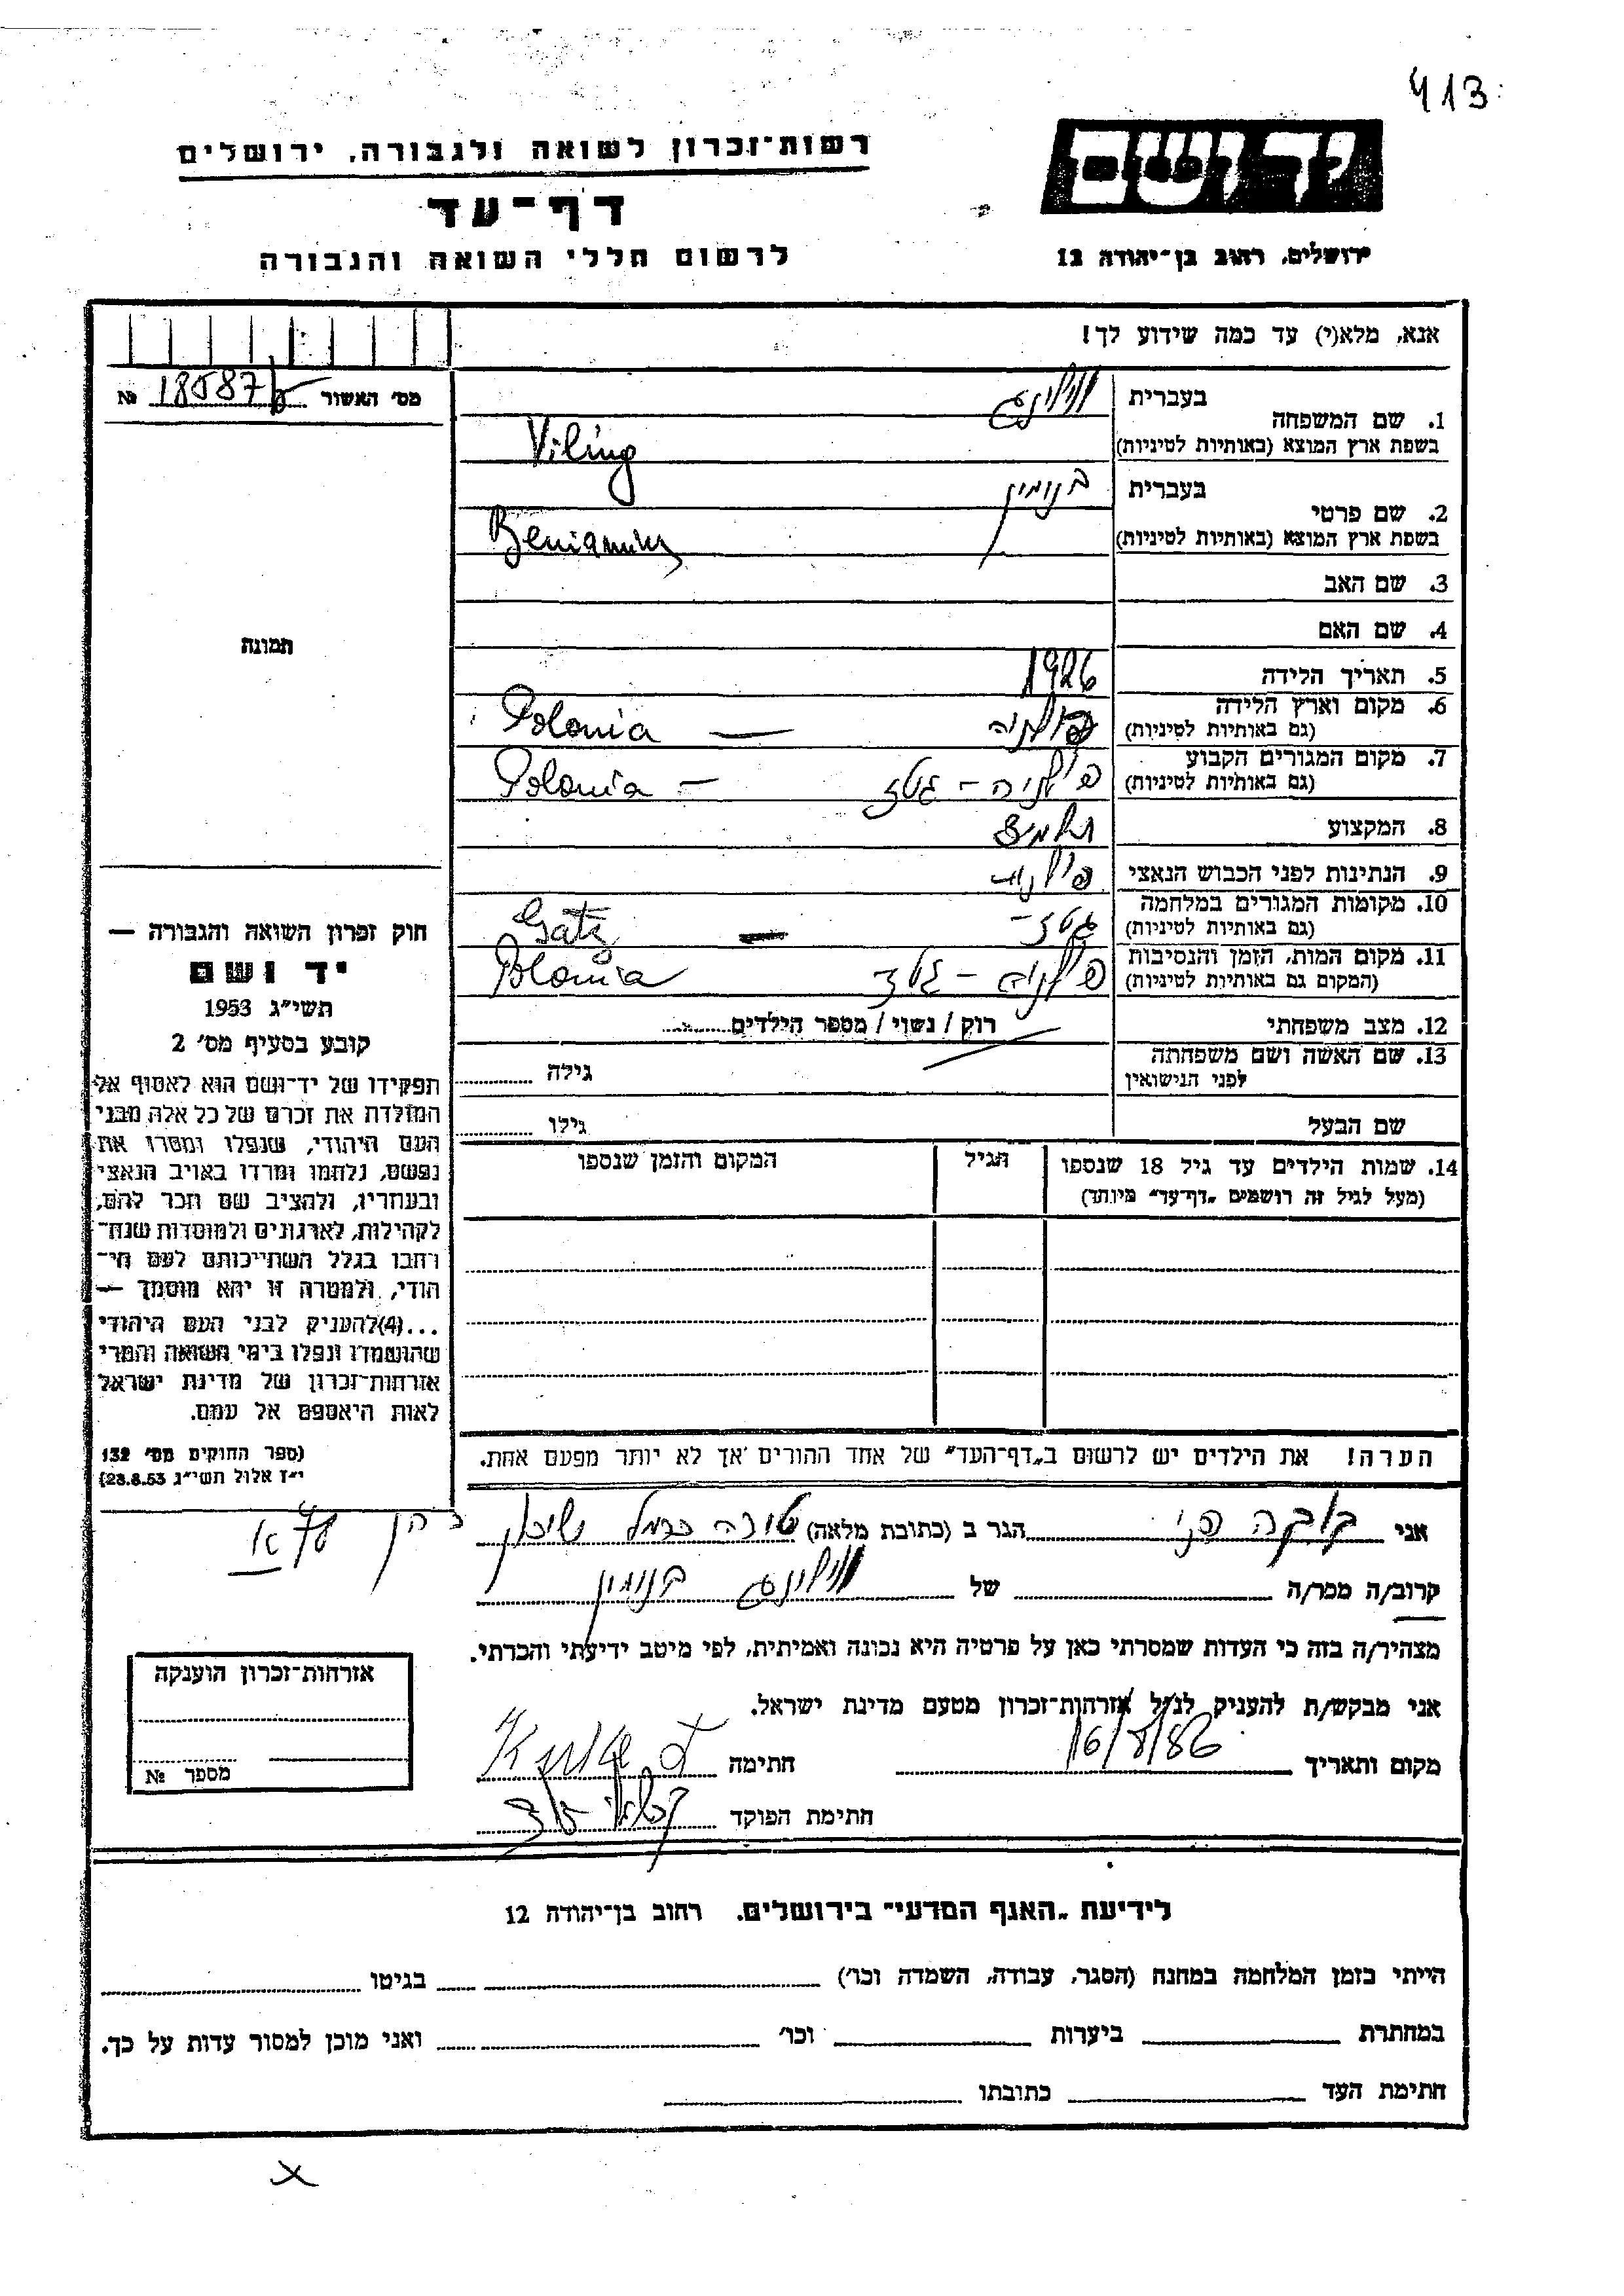 413
רשות־זכרון לשואה ולגבורה, ירושלים
דף־עד
לרשום חללי השואה והגבורה
ידושם
ירושלים, רחוב בן־יהודה 12
אנא, מלא(י) עד כמה שידוע לך!
מס׳ האשור 18587 №
תמונה
1. שם המשפחה
בעברית
בשפת ארץ המוצא (באותיות לטיניות) Viling
2. שם פרטי
בעברית בנימין
בשפת ארץ המוצא (באותיות לטיניות)
3. שם האב
4. שם האם
5. תאריך הלידה 1926
6. מקום וארץ הלידה פולניה — Polonia
(גם באותיות לטיניות)
7. מקום המגורים הקבוע פולניה – Polonia
(גם באותיות לטיניות)
8. המקצוע תלמיד
9. הנתינות לפני הכבוש הנאצי
10. מקומות המגורים במלחמה — Gatz
(גם באותיות לטיניות)
11. מקום המות, הזמן והנסיבות Polonia
(המקום גם באותיות לטיניות)
12. מצב משפחתי רוק / נשוי / מספר הילדים
13. שם האשה ושם משפחתה
לפני הנישואין גילה
שם הבעל גילו
14. שמות הילדים עד גיל 18 שנספו
(מעל לגיל זה רושמים „דף־עד״ מיוחד)
הגיל
המקום והזמן שנספו
חוק זכרון השואה והגבורה —
יד ושם
תשי״ג 1953
קובע בסעיף מס׳ 2
תפקידו של יד־ושם הוא לאסוף אל
המולדת את זכרם של כל אלה מבני
העם היהודי, שנפלו ומסרו את
נפשם, נלחמו ומרדו באויב הנאצי
ובעוזריו, ולהציב שם וזכר להם,
לקהילות, לארגונים ולמוסדות שנח־
רבו בגלל השתייכותם לעם הי־
הודי, ולמטרה זו יהא מוסמך —
...(4)להעניק לבני העם היהודי
שהושמדו ונפלו בימי השואה והמרי
אזרחות־זכרון של מדינת ישראל
לאות היאספם אל עמם.
(ספר החוקים מס׳ 132
י״ז אלול תשי״ג 28.8.53)
הערה! את הילדים יש לרשום ב„דף־העד״ של אחד ההורים אך לא יותר מפעם אחת.
אני הגר ב (כתובת מלאה)
קרוב/ה מכר/ה של בנימין
מצהיר/ה בזה כי העדות שמסרתי כאן על פרטיה היא נכונה ואמיתית, לפי מיטב ידיעתי והכרתי.
אני מבקש/ת להעניק לנ״ל אזרחות־זכרון מטעם מדינת ישראל.
מקום ותאריך 16/8/86 חתימה
חתימת הפוקד
אזרחות־זכרון הוענקה
מספר №
לידיעת „האגף המדעי״ בירושלים, רחוב בן־יהודה 12
הייתי בזמן המלחמה במחנה (הסגר, עבודה, השמדה וכו׳) בגיטו
במחתרת ביערות וכו׳ ואני מוכן למסור עדות על כך.
חתימת העד כתובתו
x